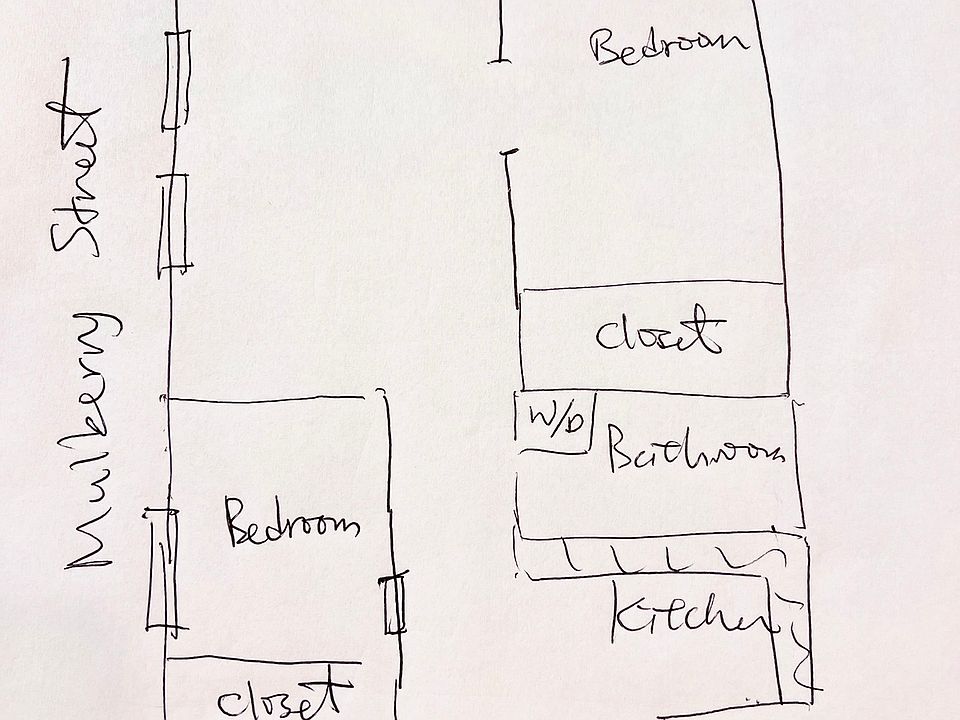 Mulberry Street
Bedroom
closet
W/D
Bathroom
Bedroom
Kitchen
closet